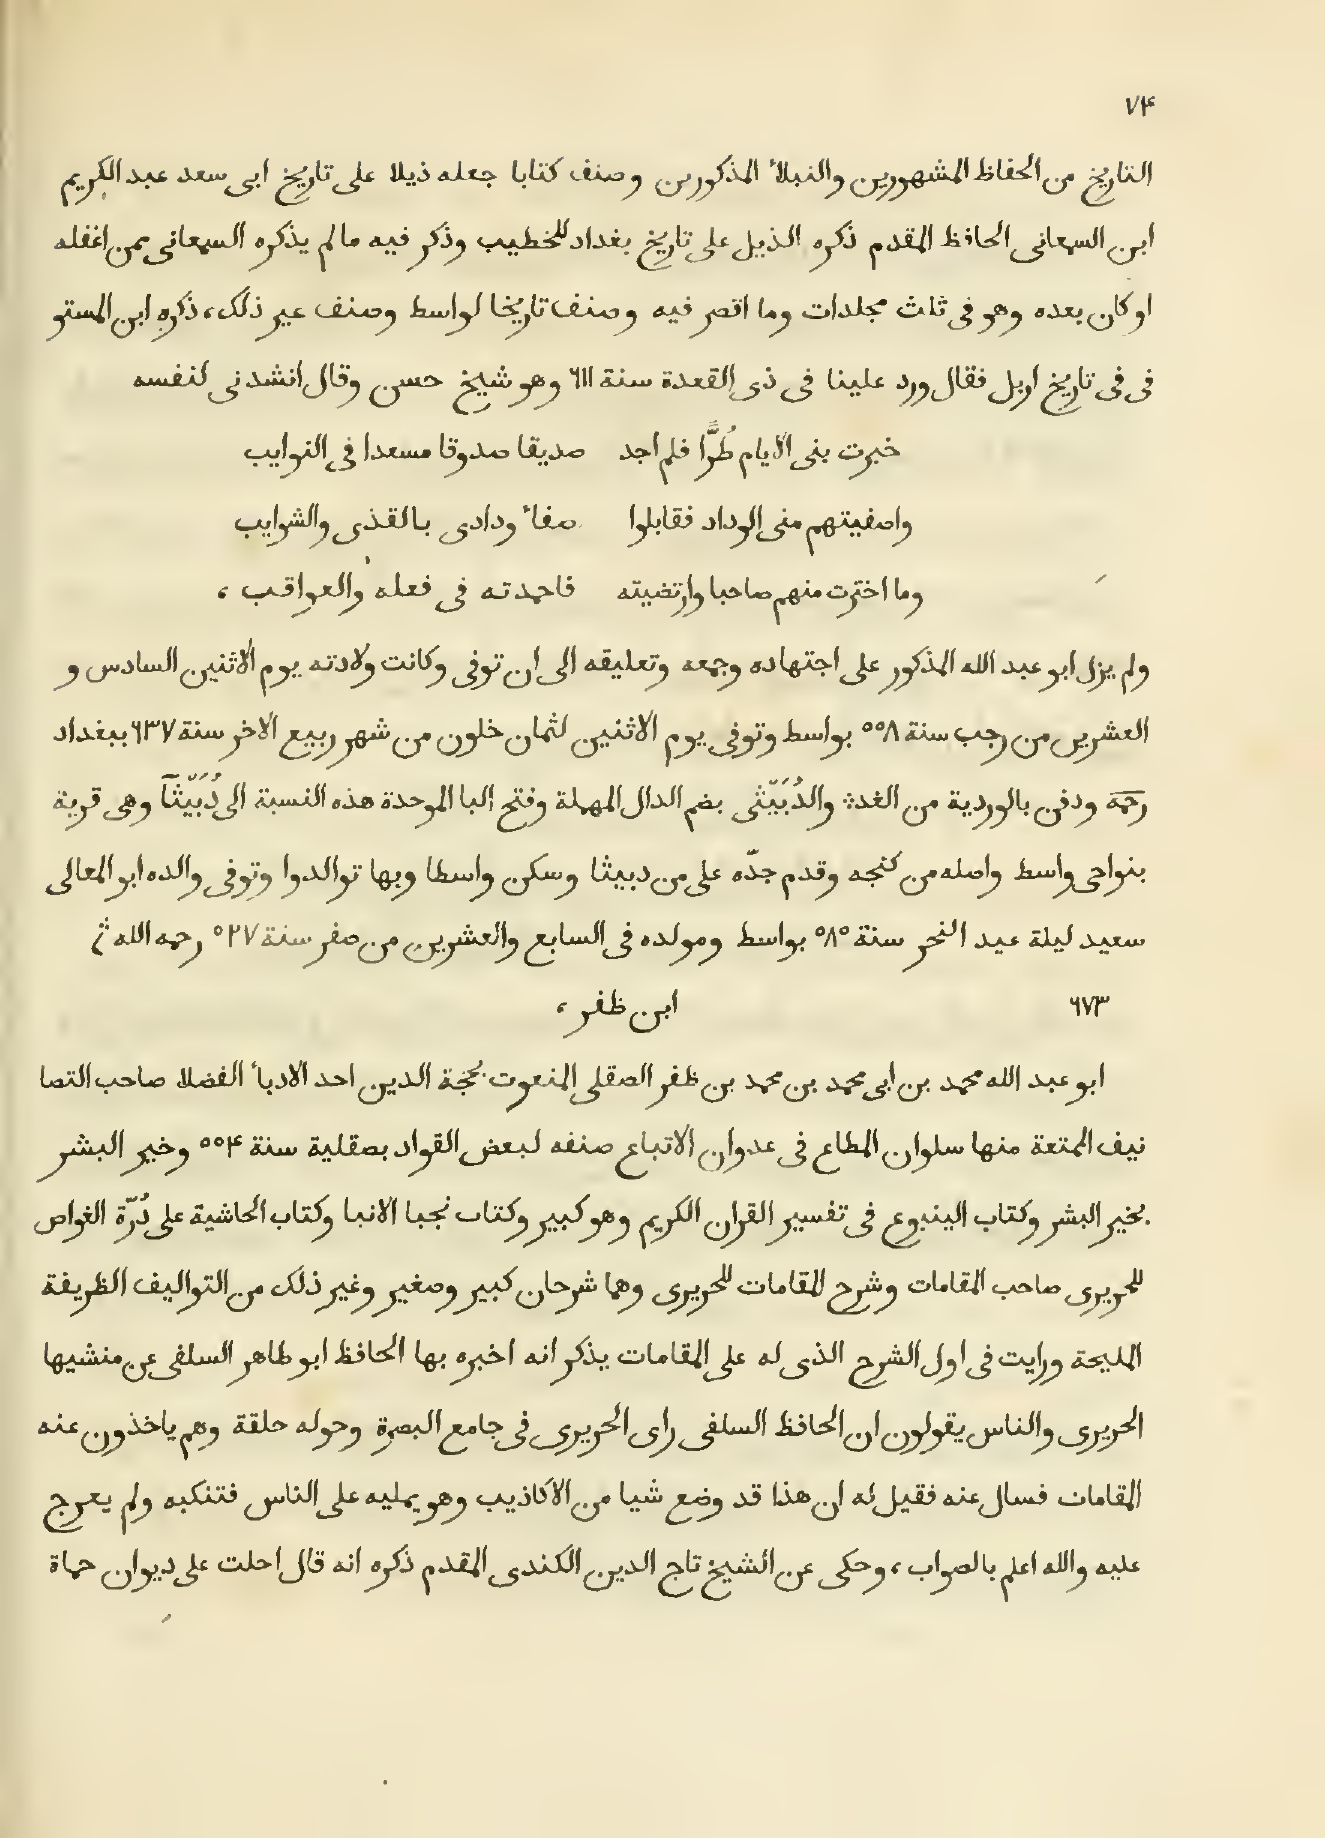 ٧۴
التاريخ من الحفاظ المشهورين والنبلاٴ المذكورين وصنف كتابا جعله ذيلا على تاريخ ابى سعد عبد الكريم
ابن السمعانى الحافظ المقدم ذكره الذيل على تاريخ بغداد للخطيب وذكر فيه مالم يذكره السمعانى ممن اغفله
او كان بعده وهو فى ثلث مجلدات وما اقصر فيه وصنف تاريخا لواسط وصنف غير ذلك، ذكره ابن المستو
فى فى تاريخ اربل فقال ورد علينا فى ذى القعدة سنة ٦١١ وهو شيخ حسن وقال انشدنى لنفسه
خبرت بنى الايام طُرًّا فلم اجد صديقا صدوقا مسعدا فى النوايب
واصفيتهم منى الوداد فقابلوا صفاٴ ودادى بالقذى والشوايب
وما اخترت منهم صاحبا وارتضيته فاحمدته فى فعله والعواقب ،
ولم يزل ابو عبد الله المذكور على اجتهاده وجمعه وتعليقه الى ان توفى وكانت ولادته يوم الاثنين السادس و
العشرين من رجب سنة ٥٥٨ بواسط وتوفى يوم الاثنين لثمان خلون من شهر ربيع الاخر سنة ٦٣٧ ببغداد
رحمه ودفن بالوردية من الغد؛ والدُبَيّثى بضم الدال المهملة وفتح البا الموحدة هذه النسبة الى دُبَيّثَا وهى قرية
بنواحى واسط واصله من كنجه وقدم جدّه على من دبيثا وسكن واسطا وبها توالدوا وتوفى والده ابو المعالى
سعيد ليلة عيد النحر سنة ٥٨٥ بواسط ومولده فى السابع والعشرين من صفر سنة ٥٢٧ رحمه الله
٦٧٣ ابن ظفر ،
ابو عبد الله محمد بن ابى محمد بن محمد بن ظفر الصقلى المنعوت بحجة الدين احد الادباٴ الفضلا صاحب التصا
نيف الممتعة منها سلوان المطاع فى عدوان الاتباع صنفه لبعض القواد بصقلية سنة ٥٥۴ وخير البشر
بخير البشر وكتاب الينبوع فى تفسير القران الكريم وهو كبير وكتاب نجبا الانبا وكتاب الحاشية على دُرّة الغواص
للحريرى صاحب المقامات وشرح المقامات للحريرى وهما شرحان كبير وصغير وغير ذلك من التواليف الظريفة
المليحة ورايت فى اول الشرح الذى له على المقامات يذكر انه اخبره بها الحافظ ابو طاهر السلفى عن منشيها
الحريرى والناس يقولون ان الحافظ السلفى راى الحريرى فى جامع البصرة وحوله حلقة وهم ياخذون عنه
المقامات فسال عنه فقيل له ان هذا قد وضع شيا من الاكاذيب وهو يمليه على الناس فتنكبه ولم يعرج
عليه والله اعلم بالصواب ، وحكى عن الشيخ تاج الدين الكندى المقدم ذكره انه قال احلت على ديوان حماة